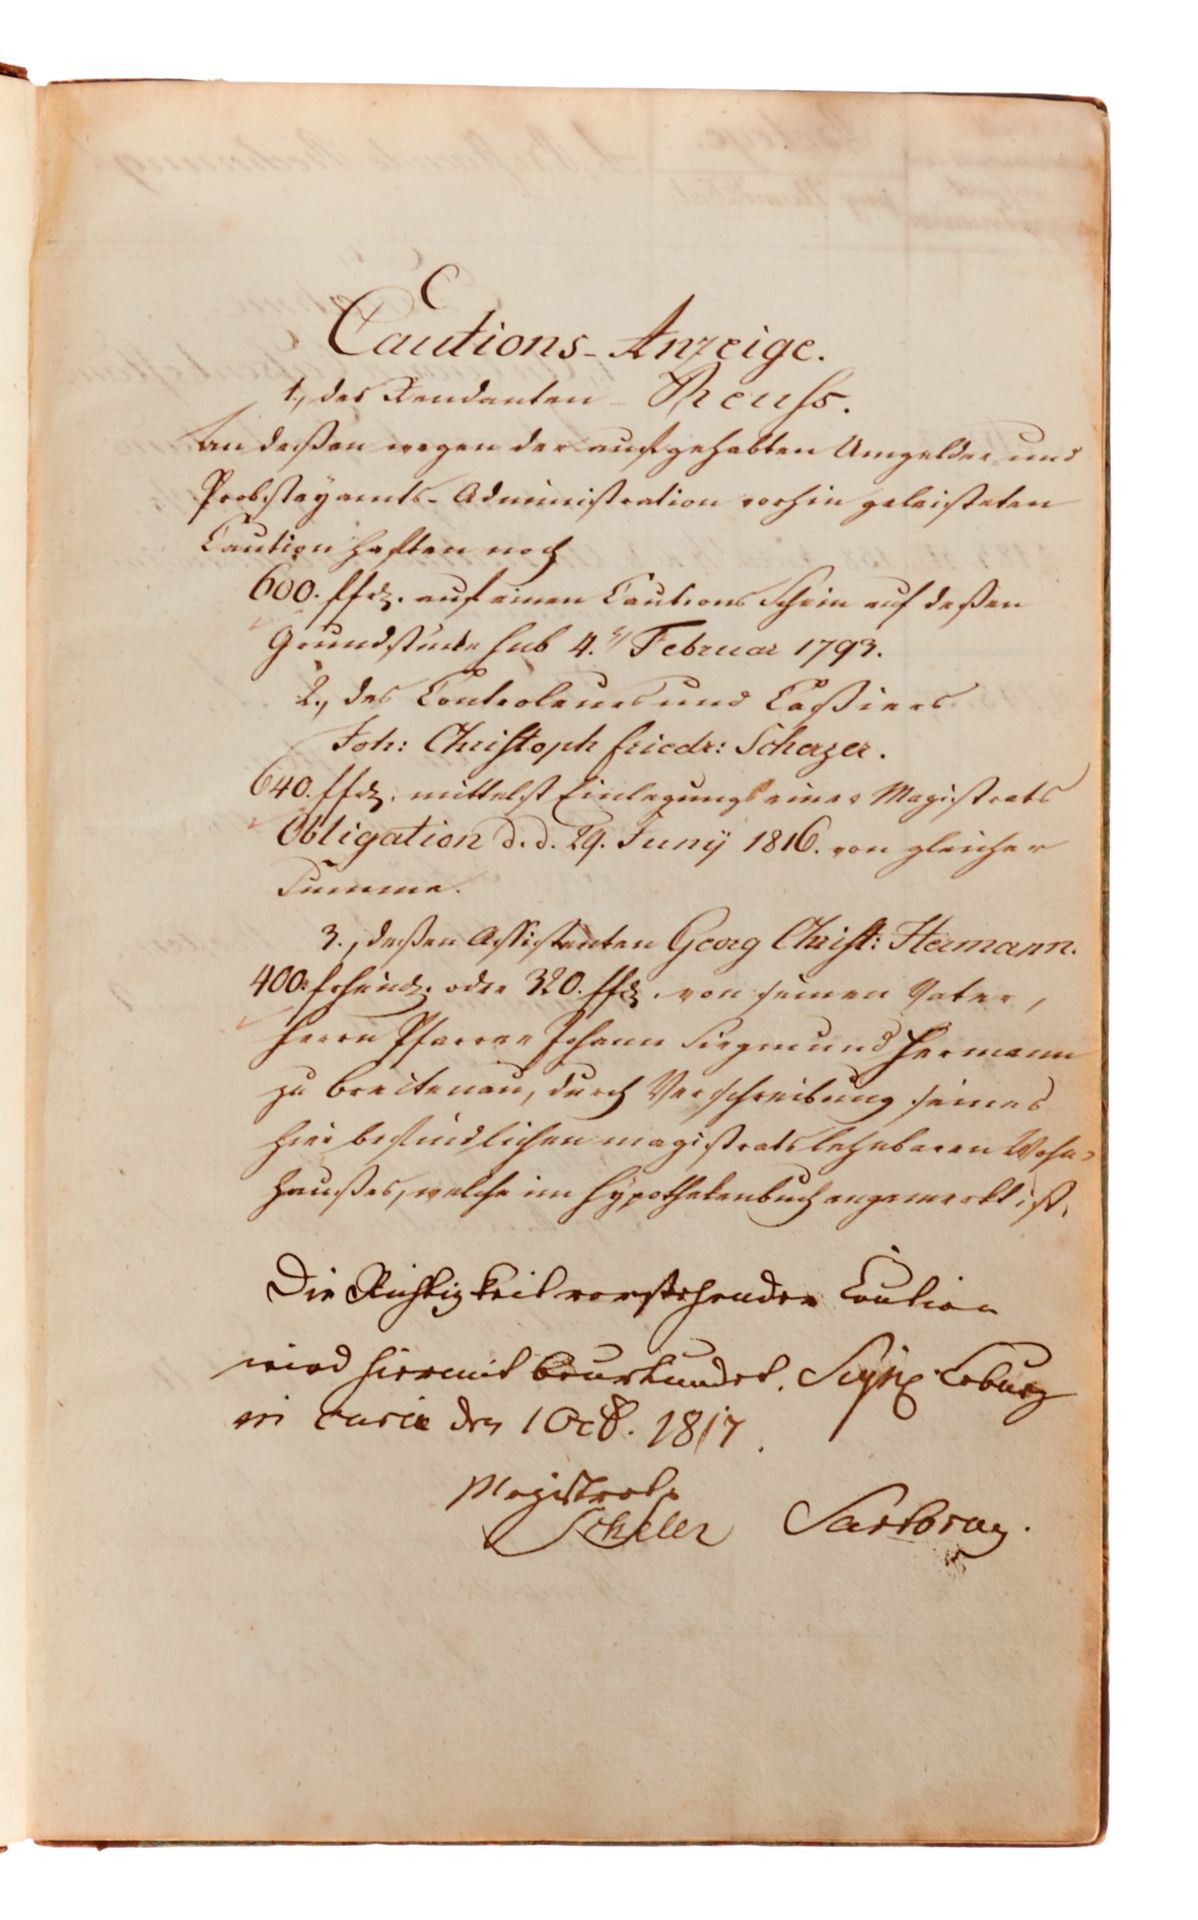 Cautions-Anzeige.
1., des Rendanten - Reuß.
An deßen wegen der aufgehabten Umgelder- und
Probsteyamts-Administration vorhin geleisteten
Caution haften noch
600. f frk. auf einen Cautions Schein auf deßen
Grundstücke sub 4. Februar 1793.
2., des Controleurs und Caßiers
Joh: Christoph Friedr: Scherzer.
640. f frk. mittelst Einlegung einer Magistrats
Obligation d. d. 29. Junÿ 1816. von gleicher
Summe.
3., deßen Assistenten Georg Christ: Hermann.
400. f rheinl. oder 320. f frk. von seinen Vater,
Herrn Pfarrer Johann Siegmund Hermann
zu Breitenau, durch Verschreibung seines
hier befindlichen magistratslehnbaren Wohn-
haußes, welche im Hÿpothekenbuch angemerkt ist.
Die Richtigkeit vorstehender Caution
wird hiermit beurkundet. Sign. Coburg
in curia den 1 Oct. 1817.
Magistrat
Scheler Sartorius.